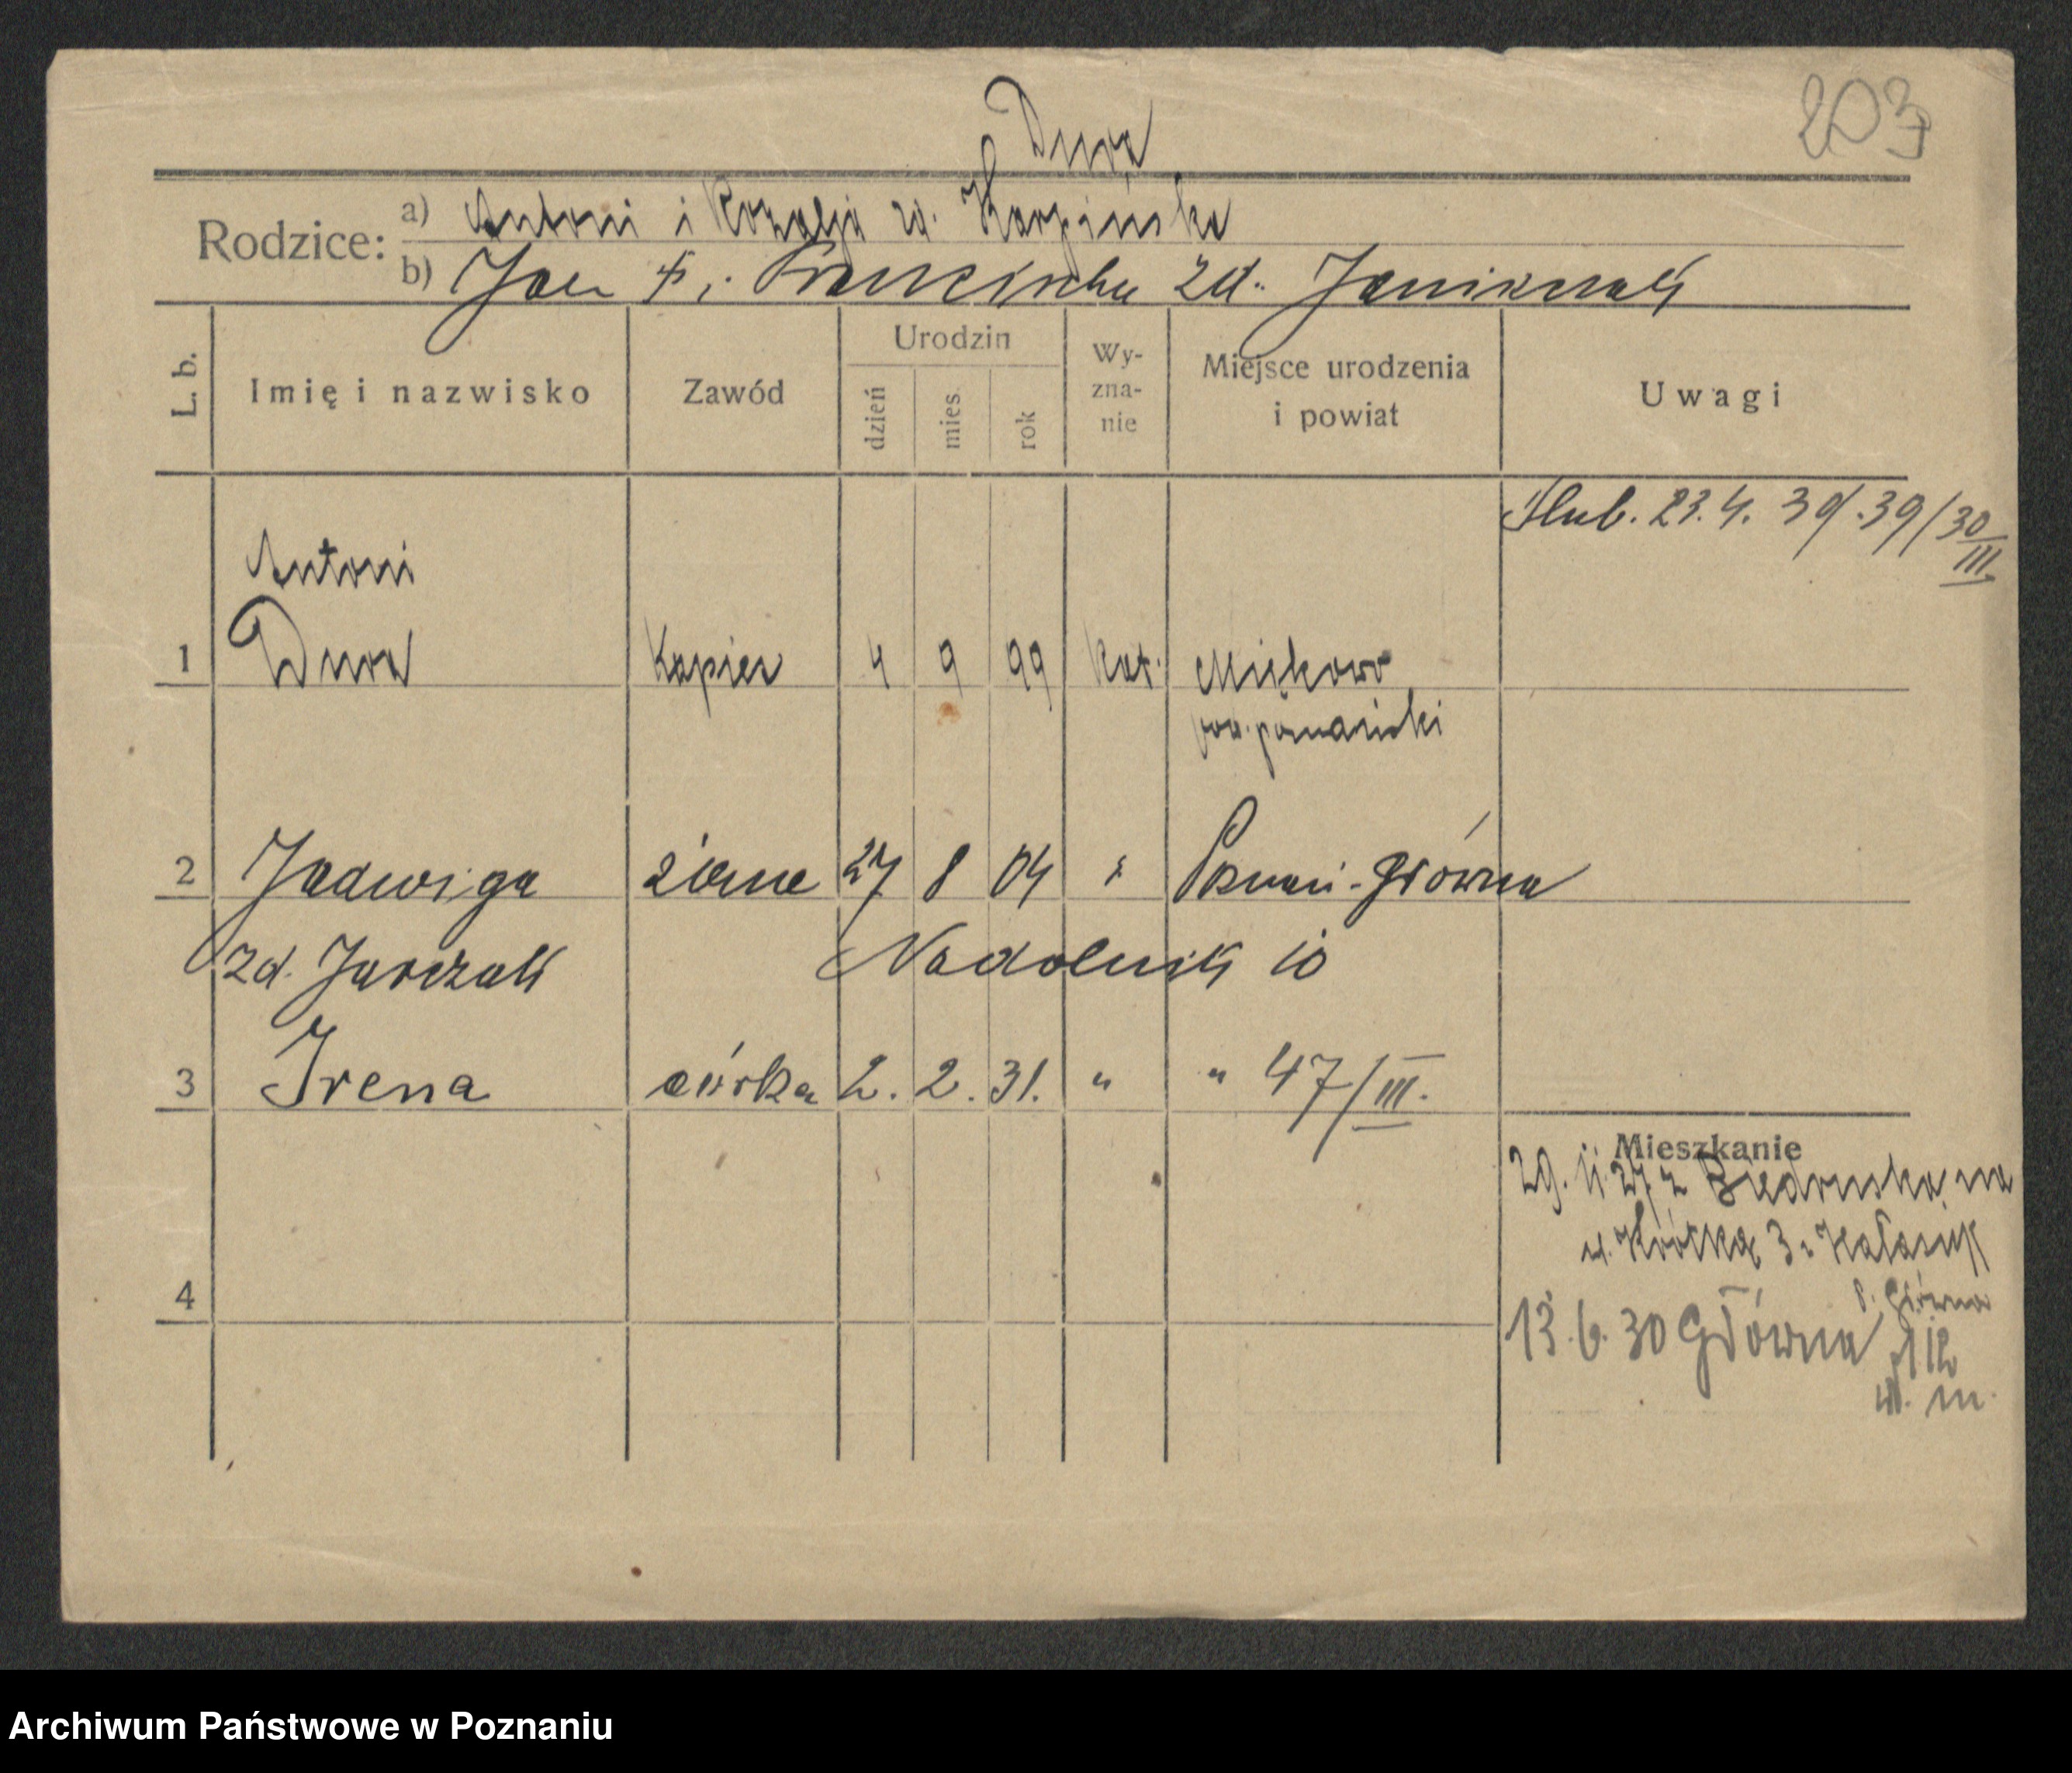 203
Dura
Rodzice: a) Antoni i Rozalja zd. Karpińska
b) Jan i Franciszka zd. Janikzak
L. b.
Imię i nazwisko
Zawód
Urodzin
dzień
mies.
rok
Wy-
zna-
nie
Miejsce urodzenia
i powiat
Uwagi
Ślub. 23.4. 30/III.
Antoni
1 Dura kupiec 4 9 99 kat. Miękowo
pow. poznański
2 Jadwiga żona 27 8 04 " Poznań-Główna
zd. Jarczak Nadolnik 10
3 Irena córka 2. 2. 31. " " 47/III.
Mieszkanie
29. 11. 27 z Biedruska na
ul. Krótką 3
4
13. 6. 30 Główna
Główna
Archiwum Państwowe w Poznaniu